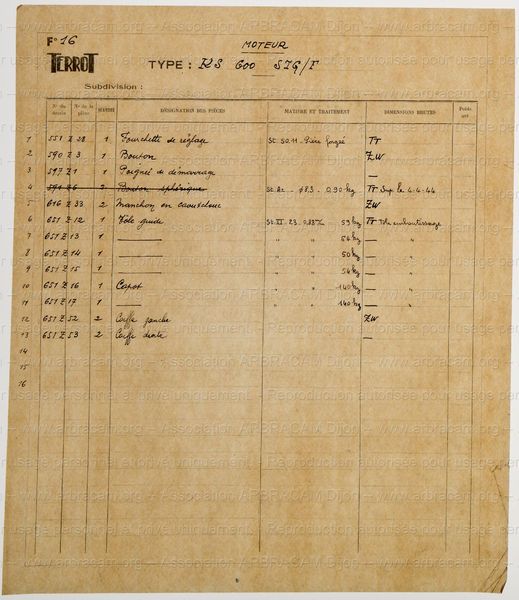 F° 16
MOTEUR
TERROT
TYPE : RS 600 SIG/F
Subdivision :
N° du dessin N° de la pièce NOMBRE DÉSIGNATION DES PIÈCES MATIÈRE ET TRAITEMENT DIMENSIONS BRUTES Poids net
1 551 Z 28 1 Fourchette de réglage St. 50.11 - Pièce forgée TT
2 590 Z 3 1 Bouton ZW
3 597 Z 1 1 Poignée de démarrage —
4 591 Z 6 2 Bouton sphérique St. Az. - φ 8.3 - 0.90 kg TT Sup. le 4-4-44
5 616 Z 33 2 Manchon en caoutchouc ZW
6 651 Z 12 1 Tôle guide St. VI 23 59 kg TT Tôle emboutissage
7 651 Z 13 1 — " " 54 kg — "
8 651 Z 14 1 — " " 50 kg — "
9 651 Z 15 1 — " " 54 kg — "
10 651 Z 16 1 Capot " " 140 kg — "
11 651 Z 17 1 — " " 140 kg — "
12 651 Z 52 2 Coiffe gauche ZW
13 651 Z 53 2 Coiffe droite —
14
15
16
www.arbracam.org – Association ARBRACAM Dijon – www.arbracam.org
Reproduction autorisée pour usage personnel et privé uniquement.